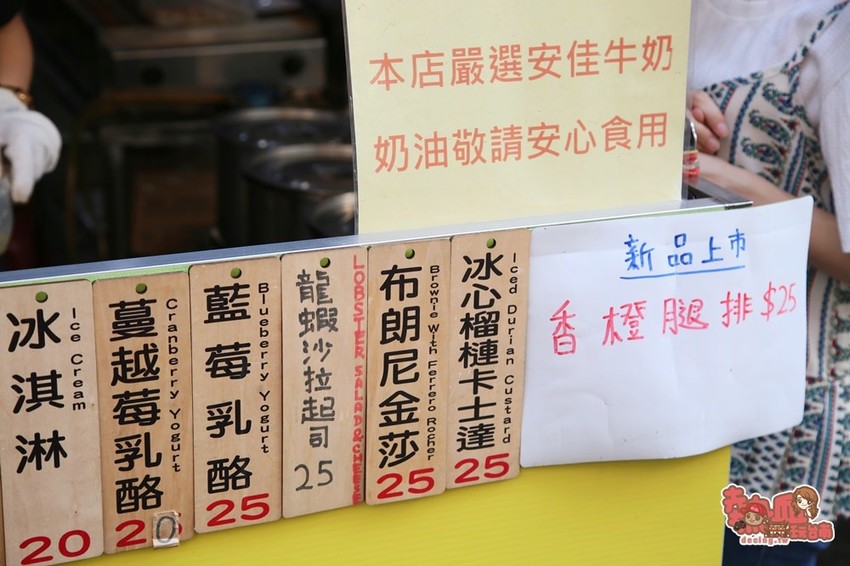 本店嚴選安佳牛奶
奶油敬請安心食用
冰淇淋
Ice Cream
20
蔓越莓乳酪
Cranberry Yogurt
20
藍莓乳酪
Blueberry Yogurt
25
龍蝦沙拉起司
LOBSTER SALAD&CHEESE
25
布朗尼金莎
Brownie With Ferrero Rocher
25
冰心榴槤卡士達
Iced Durian Custard
25
新品上市
香橙腿排$25
熱血玩台南
decing.tw